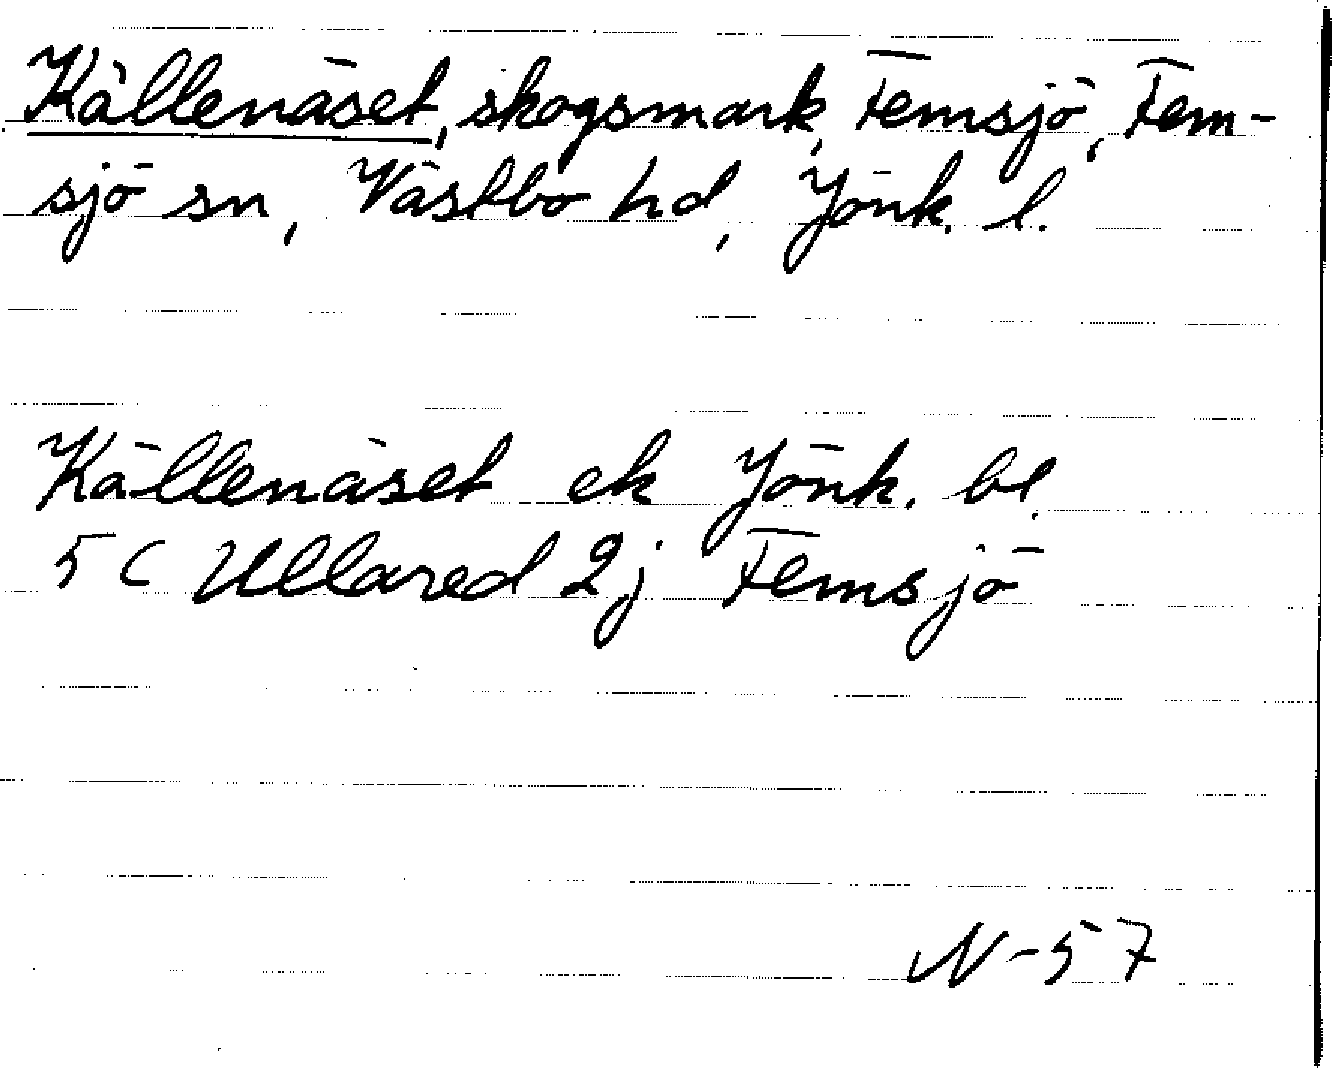 Källenäset, skogsmark, Femsjö, Fem-
sjö sn, Västbo hd, Jönk. l.
Källenäset ek Jönk. bl.
5 C Ullared 2j Femsjö
N-57